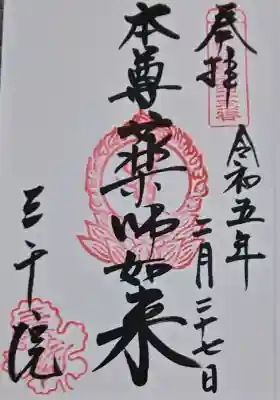 奉拝
令和五年
二月二十七日
本尊
薬师如来
三千院